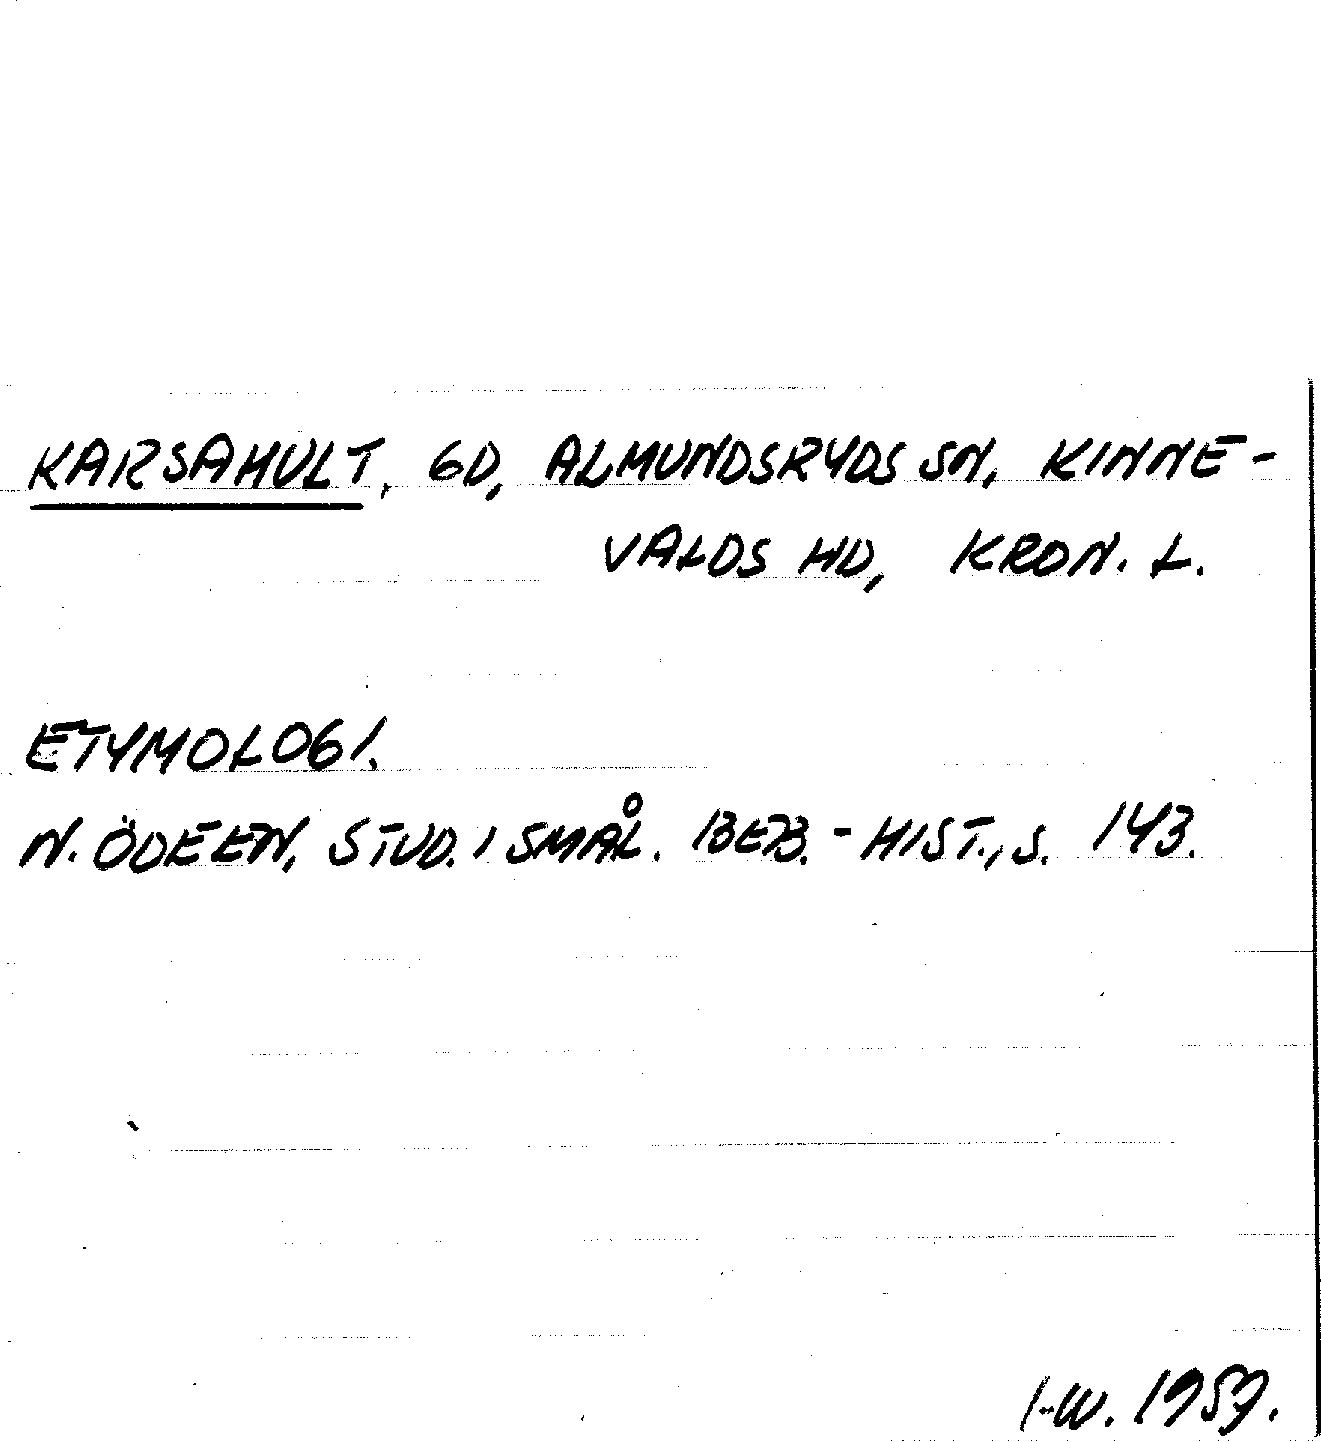 KARSAHULT, GD, ALMUNDSRYDS SN, KINNE-
VALDS HD, KRON. L.
ETYMOLOGI.
N. ÖDEEN, STUD. I SMÅL. BEB. - HIST., S. 143.
I-W. 1959.